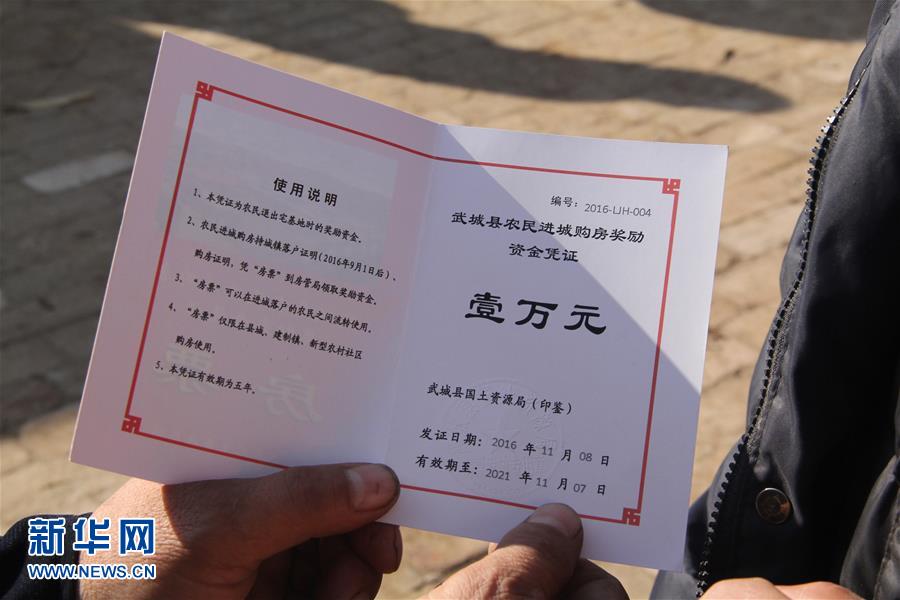 使用说明
1、本凭证为农民退出宅基地时的奖励资金.
2、农民进城购房持城镇落户证明(2016年9月1日后)、
购房证明, 凭“房票”到房管局领取奖励资金.
3、“房票”可以在进城落户的农民之间流转使用.
4、“房票”仅限在县城、建制镇、新型农村社区
购房使用.
5、本凭证有效期为五年.
编号: 2016-LJH-004
武城县农民进城购房奖励
资金凭证
壹万元
武城县国土资源局(印鉴)
发证日期: 2016 年 11 月 08 日
有效期至: 2021 年 11 月 07 日
新华网
WWW.NEWS.CN